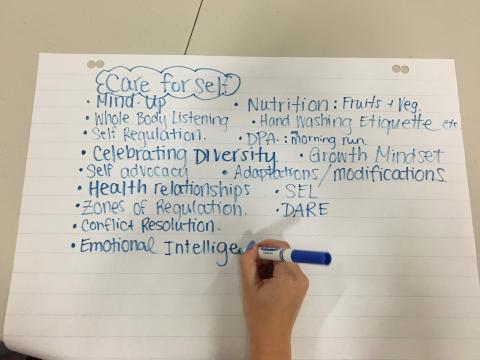 Care for self
• Mind-Up
• Nutrition: Fruits + Veg.
• Whole Body Listening
• Hand Washing Etiquette etc
• Self Regulation.
• DPA: morning run.
• Celebrating Diversity
• Growth Mindset
• Self advocacy
• Adaptations/modifications.
• Health relationships
• SEL
• Zones of Regulation.
• DARE
• Conflict Resolution.
• Emotional Intellige